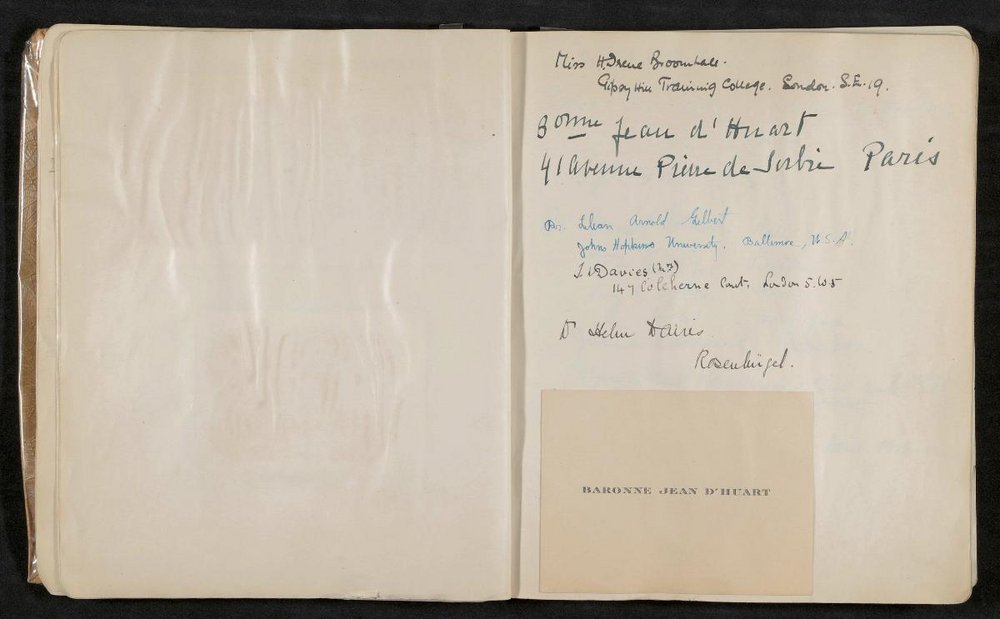 Miss H Irene Broomhall.
Gipsy Hill Training College. London. S.E. 19.
Bonne Jean d'Huart
41 avenue Pierre de Serbie Paris
Dr. Lilian Arnold Gilbert
Johns Hopkins University, Baltimore, U.S.A.
Davies
147 Colcherne Court, London S.W5
Dr Helen Davies.
Rosenhügel.
BARONNE JEAN D'HUART